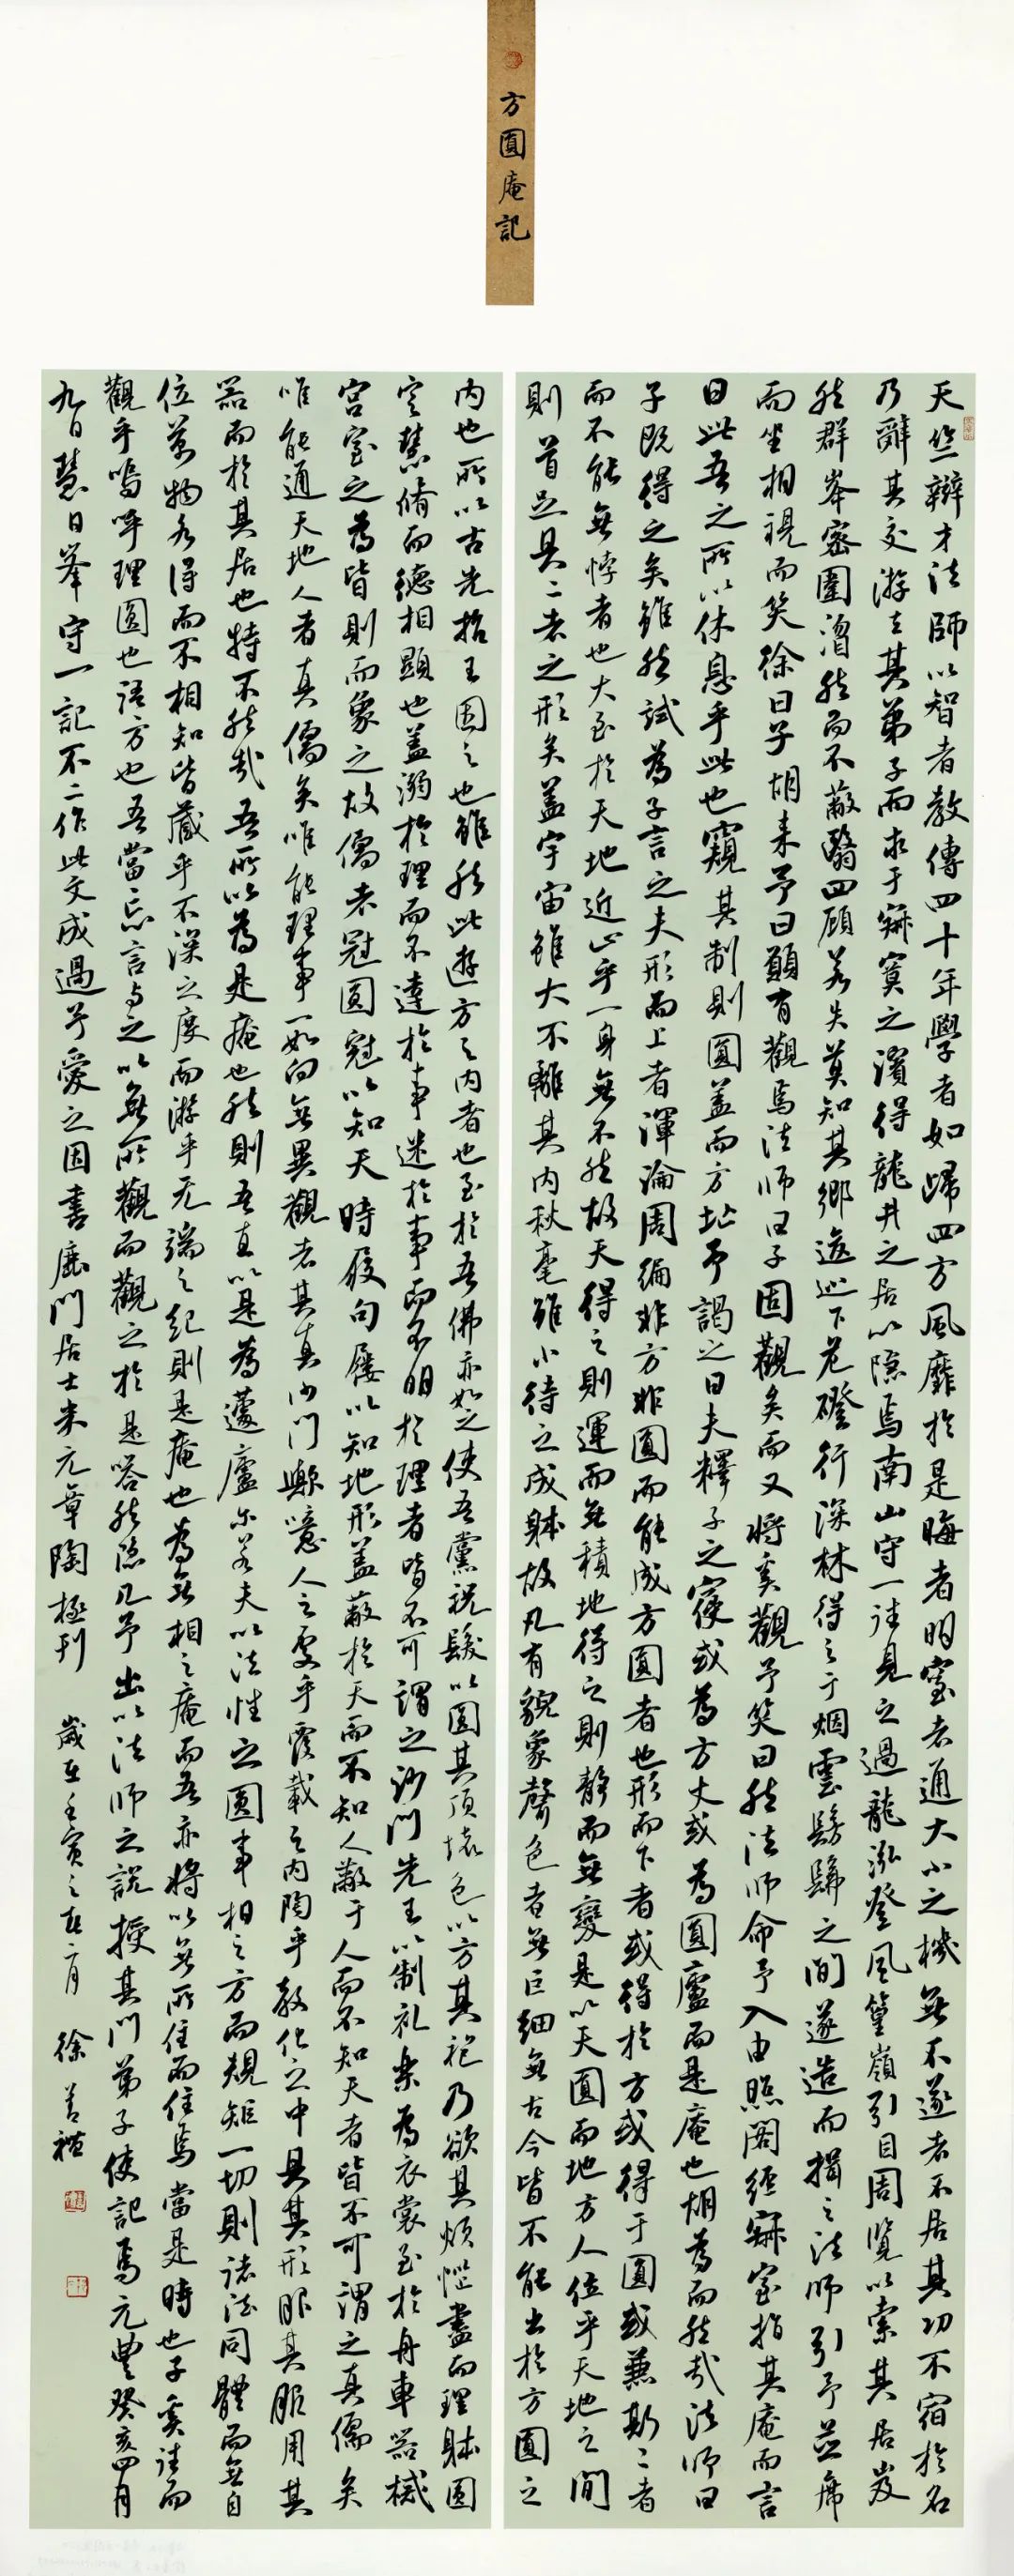 方圓庵記
天竺辯才法師以智者教傳四十年學者如歸四方風靡於是晦者明窒者通大小之機無不遂者不居其功不宿於名
乃辭其交游去其弟子而求于寂寞之濱得龍井之居以隱焉南山守一往見之過龍泓登風篁嶺引目周覽以索其居岌
然群峯密圍溜然而不蔽翳四顧若失莫知其鄉逡巡下危磴行深林得之于烟雲髣髴之間遂造而揖之法師引予並席
而坐相視而笑徐曰子胡來予曰願有觀焉法師曰子固觀矣而又將奚觀予笑曰然法師命予入由照閣經寂室指其庵而言
曰此吾之所以休息乎此也窺其制則圓蓋而方址予謁之曰夫釋子之寢或為方丈或為圓廬而是庵也胡為而然哉法師曰
子既得之矣雖然試為子言之夫形而上者渾淪周徧非方非圓而能成方圓者也形而下者或得於方或得于圓或兼斯二者
而不能無悖者也大至於天地近止乎一身無不然故天得之則運而無積地得之則靜而無變是以天圓而地方人位乎天地之間
則首足具二者之形矣蓋宇宙雖大不離其内秋毫雖小待之成躰故凡有貌象聲色者無巨細無古今皆不能出於方圓之
内也所以古先哲王因之也雖然此遊方之内者也至於吾佛亦如之使吾黨祝髮以圓其頂壞色以方其袍乃欲其煩惱盡而理躰圓
定慧脩而德相顯也蓋溺於理而不達於事迷於事而不明於理者皆不可謂之沙門先王以制礼樂為衣裳至於舟車器械
宮室之為皆則而象之故儒者冠圓冠以知天時履句屨以知地形蓋蔽於天而不知人蔽于人而不知天者皆不可謂之真儒矣
唯能通天地人者真儒矣唯能理事一如向無異觀者其真沙門歟噫人之處乎覆載之内陶乎教化之中具其形服其服用其
器而於其居也特不然哉吾所以為是庵也然則吾直以是為蘧廬尔若夫以法性之圓事相之方而規矩一切則諸法同體而無自
位萬物各得而不相知皆藏乎不深之度而游乎无端之紀則是庵也為無相之庵而吾亦將以無所住而住焉當是時也子奚往而
觀乎嗚呼理圓也語方也吾當忘言與之以無所觀而觀之於是嗒然隱几予出以法師之說授其門弟子使記焉元豊癸亥四月
九日慧日峯守一記不二作此文成過予愛之因書鹿門居士米元章陶拯刊 歲在壬寅之春二月 徐善禮